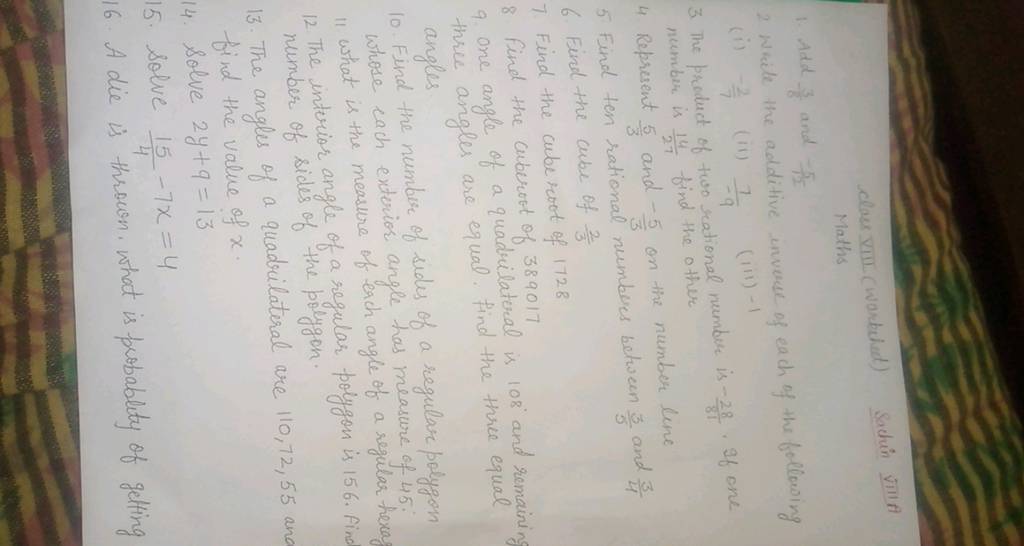 Sachin VIII A
Class VIII (Worksheet)
Maths
1. Add 3/8 and -5/12
2 Write the additive inverse of each of the following
(i) -2/7 (ii) 7/-9 (iii) -1
3 The product of two rational number is -28/81. If one
number is 14/27 find the other
4 Represent 5/3 and -5/3 on the number line
5 Find ten rational numbers between 3/5 and 3/4
6 Find the cube of 2/3
7. Find the cube root of 1728
8 Find the cuberoot of 389017
9. One angle of a quadrilateral is 108° and remaining
three angles are equal. Find the three equal
angles.
10. Find the number of sides of a regular polygon
whose each exterior angle has measure of 45°
11 what is the measure of each angle of a regular hexag
12. The interior angle of a regular polygon is 156. Find
number of sides of the polygon.
13. The angles of a quadrilateral are 110, 72, 55 and
find the value of x.
14. Solve 2y+9=13
15. Solve 15/4 - 7x = 4
16. A die is thrown. what is probability of getting